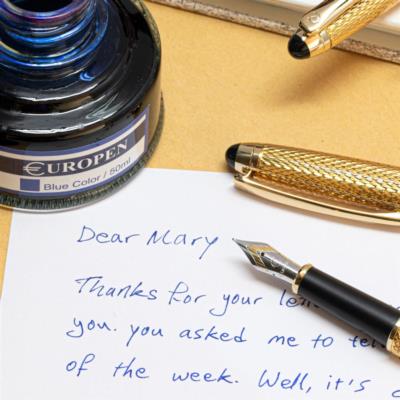 €UROPEN
Blue Color / 50ml
Dear Mary
Thanks for your
you. you asked me to
of the week. Well, it's